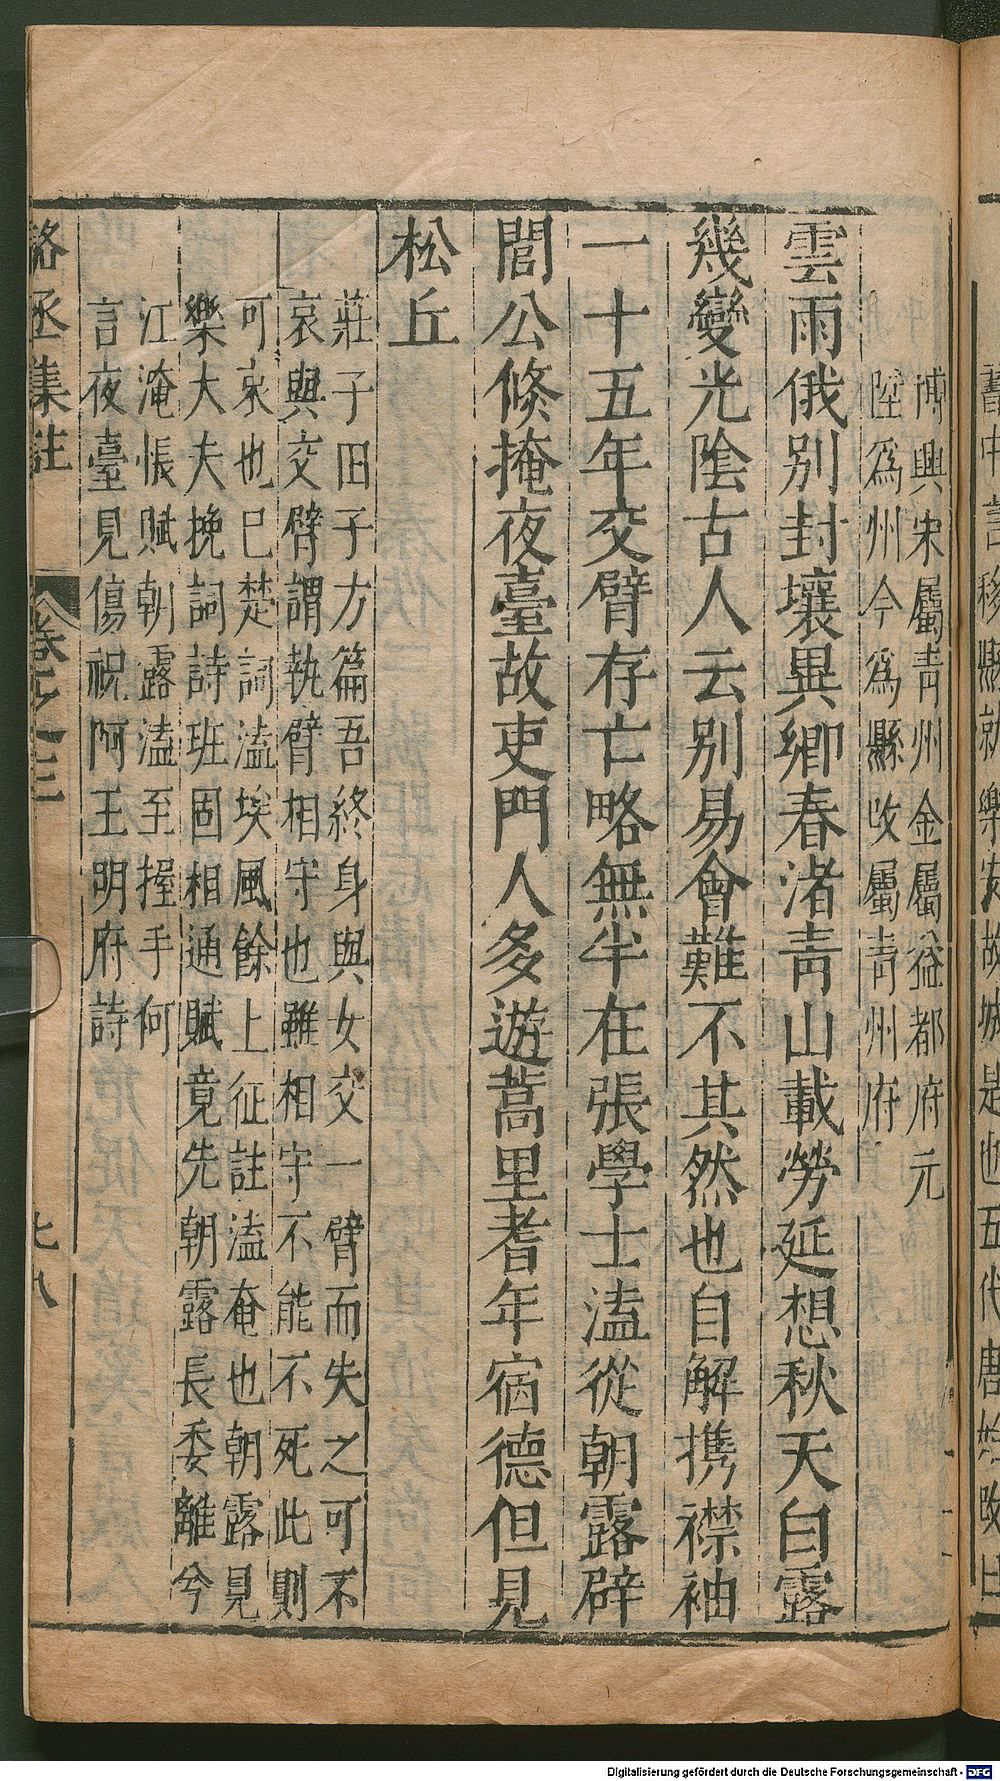 博興宋屬青州金屬益都府元
陞爲州今爲縣改屬青州府
雲雨俄別封壤異鄉春渚青山載勞延想秋天白露
幾變光陰古人云別易會難不其然也自解携襟袖
一十五年交臂存亡略無半在張學士溘從朝露辟
閭公倐掩夜臺故吏門人多遊蒿里耆年宿德但見
松丘
莊子田子方篇吾終身與女交一臂而失之可不
哀與交臂謂執臂相守也雖相守不能不死此則
可哀也巳楚詞溘埃風餘上征註溘奄也朝露見
樂大夫挽詞詩班固相通賦竟先朝露長委離兮
江淹悵賦朝露溘至握手何
言夜臺見傷祝阿王明府詩
駱丞集註
卷之三
七八
書中言移縣就樂安故城是也五代唐
Digitalisierung gefördert durch die Deutsche Forschungsgemeinschaft - DFG